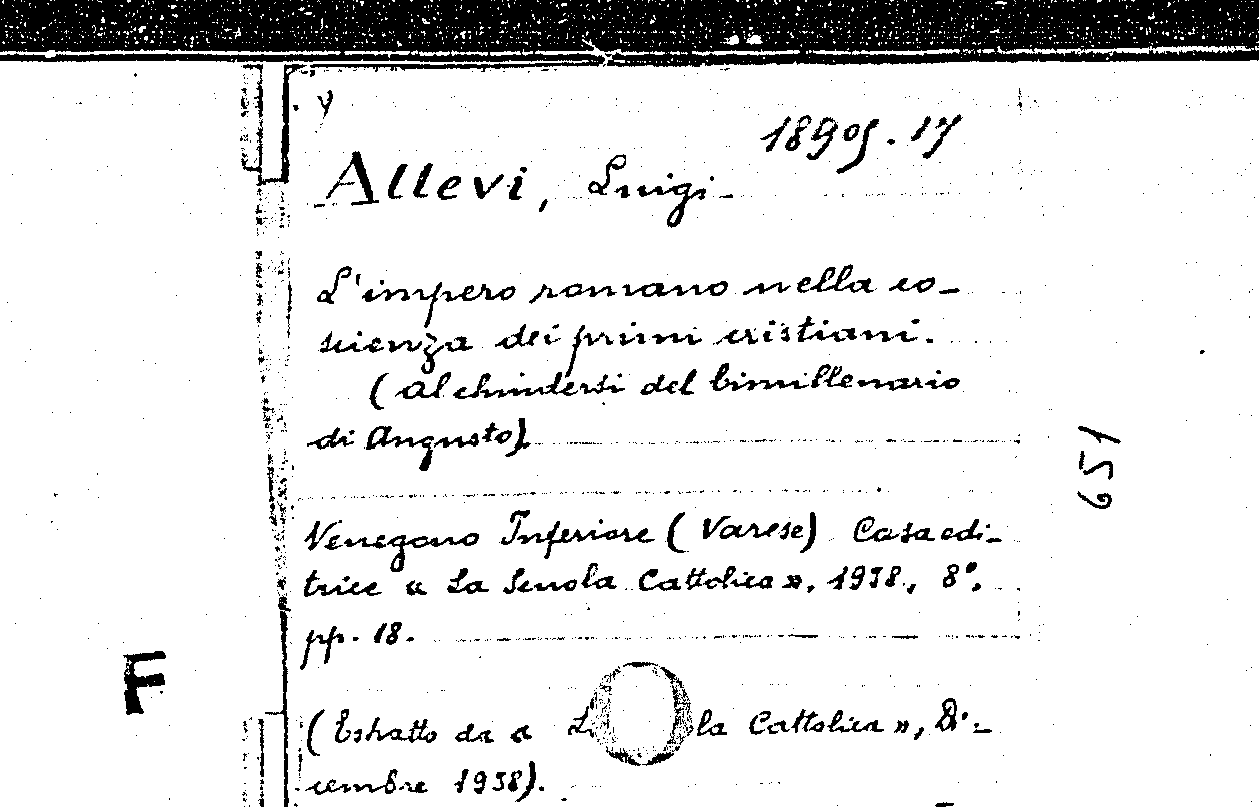 y
18909.17
Allevi, Luigi
L'impero romano nella co-
scienza dei primi cristiani.
(Al chiudersi del bimillenario
di Augusto).
651
Venegono Inferiore (Varese) Casa edi-
trice « La Scuola Cattolica », 1938., 8°,
pp. 18.
F
(Estratto da « la Cattolica », Di-
cembre 1938).